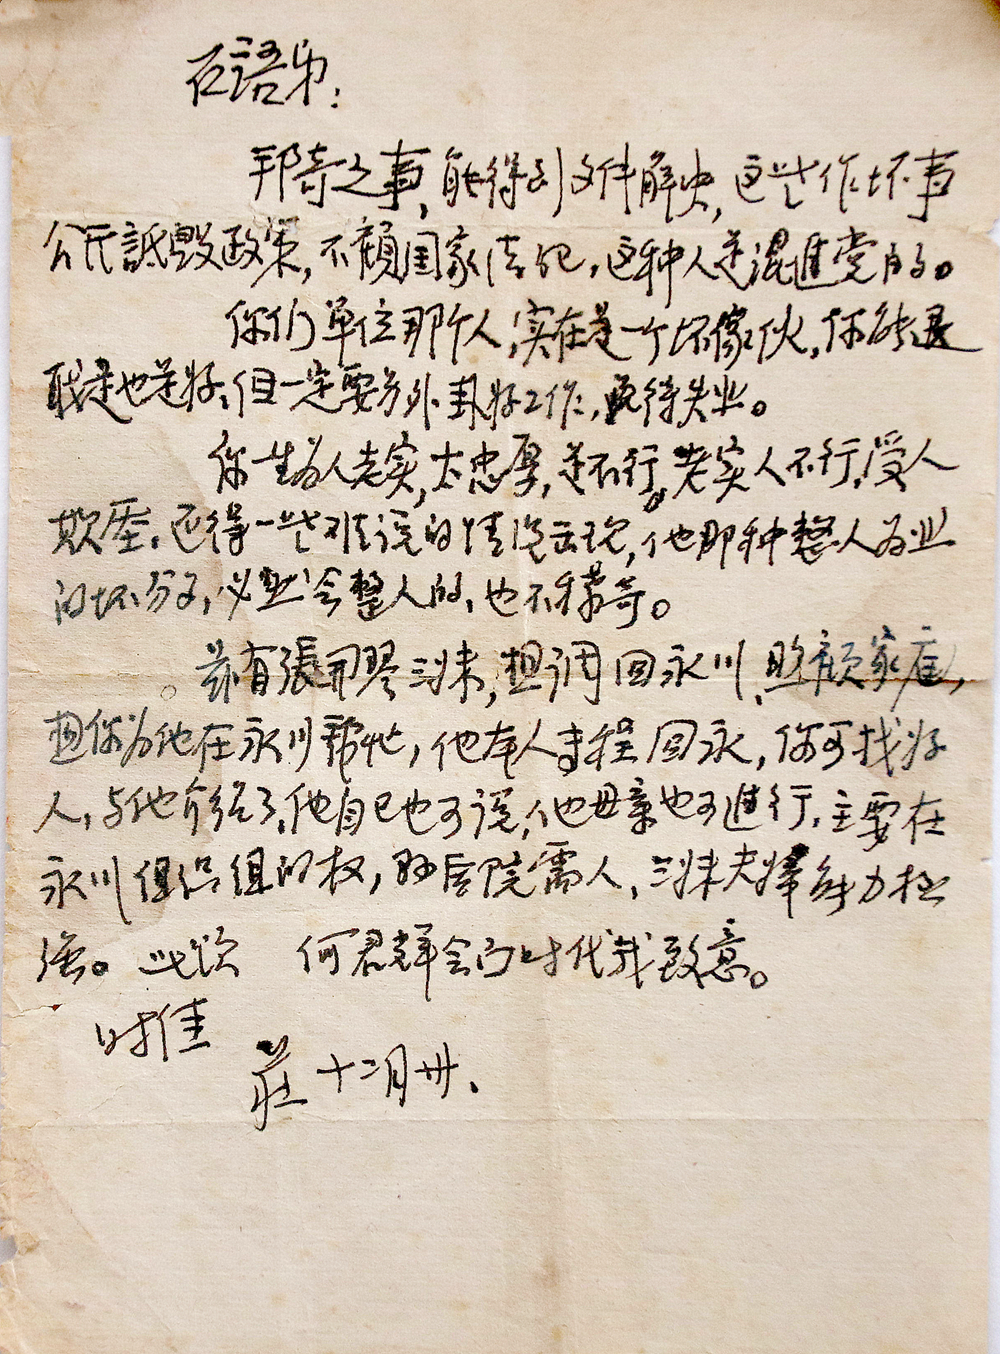 石语弟:
邦奇之事,能得到文件解央,这些作坏事
公民詆毁政策,不顧国家法纪,这种人是混進党内的。
你们单位那个人,实在是一个坏傢伙,你能退
职是也是好,但一定要另外卦好工作,免待失业。
你一生为人老实,太忠厚,是不行。老实人不行,受人
欺压,还得一些难说的情况出现,他那种整人为业
的坏分子,必然会整人的,也不稀奇。
兹有張開琴三妹,想调回永川,照顧家庭,
想你为他在永川帮忙,他本人专程回永,你可找好
人,与他介绍了,他自己也可说,他母亲也可進行,主要在
永川组织组的权,孙医院需人,三妹夫婿能力极
强。此颂 何君辉会面时代我致意。
时佳
莊 十二月卅.